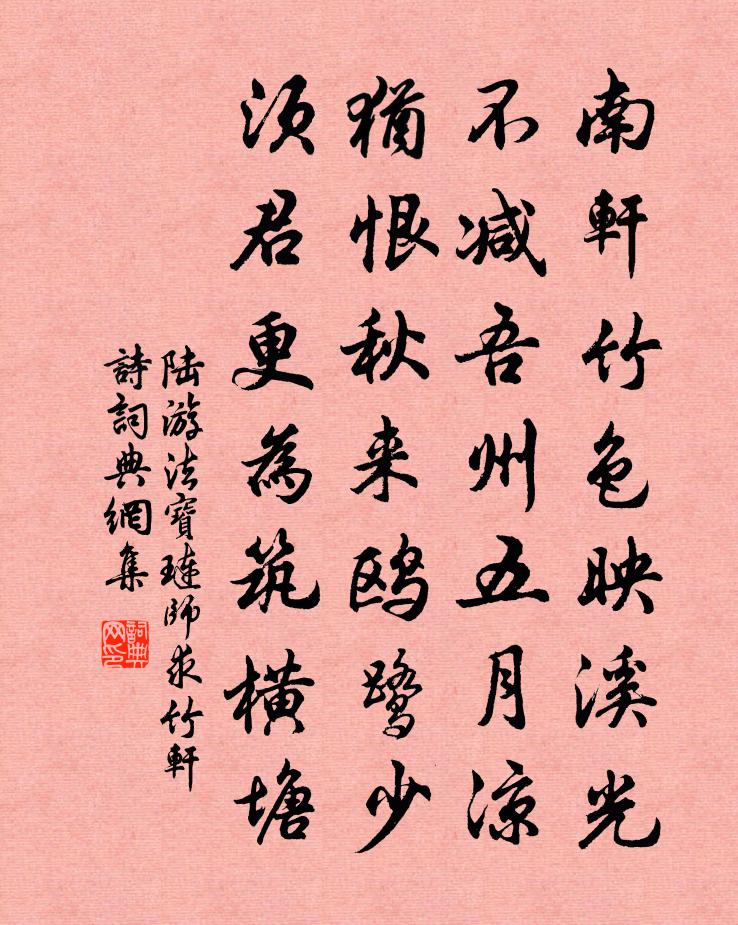 南軒竹色映溪光
不減吾州五月涼
猶恨秋来鷗鷺少
須君更為筑橫塘
陸游法寶璉師求竹軒
詩詞典網集
詞典网印